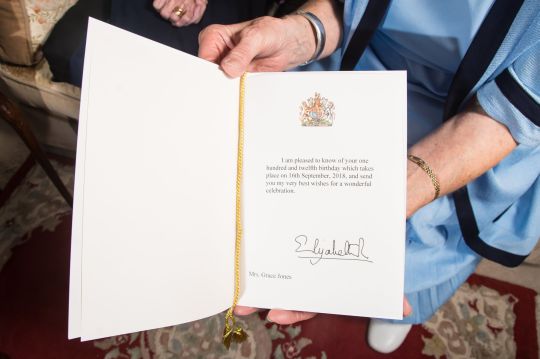 I am pleased to know of your one
hundred and twelfth birthday which takes
place on 16th September, 2018, and send
you my very best wishes for a wonderful
celebration.
Elizabeth R
Mrs. Grace Jones